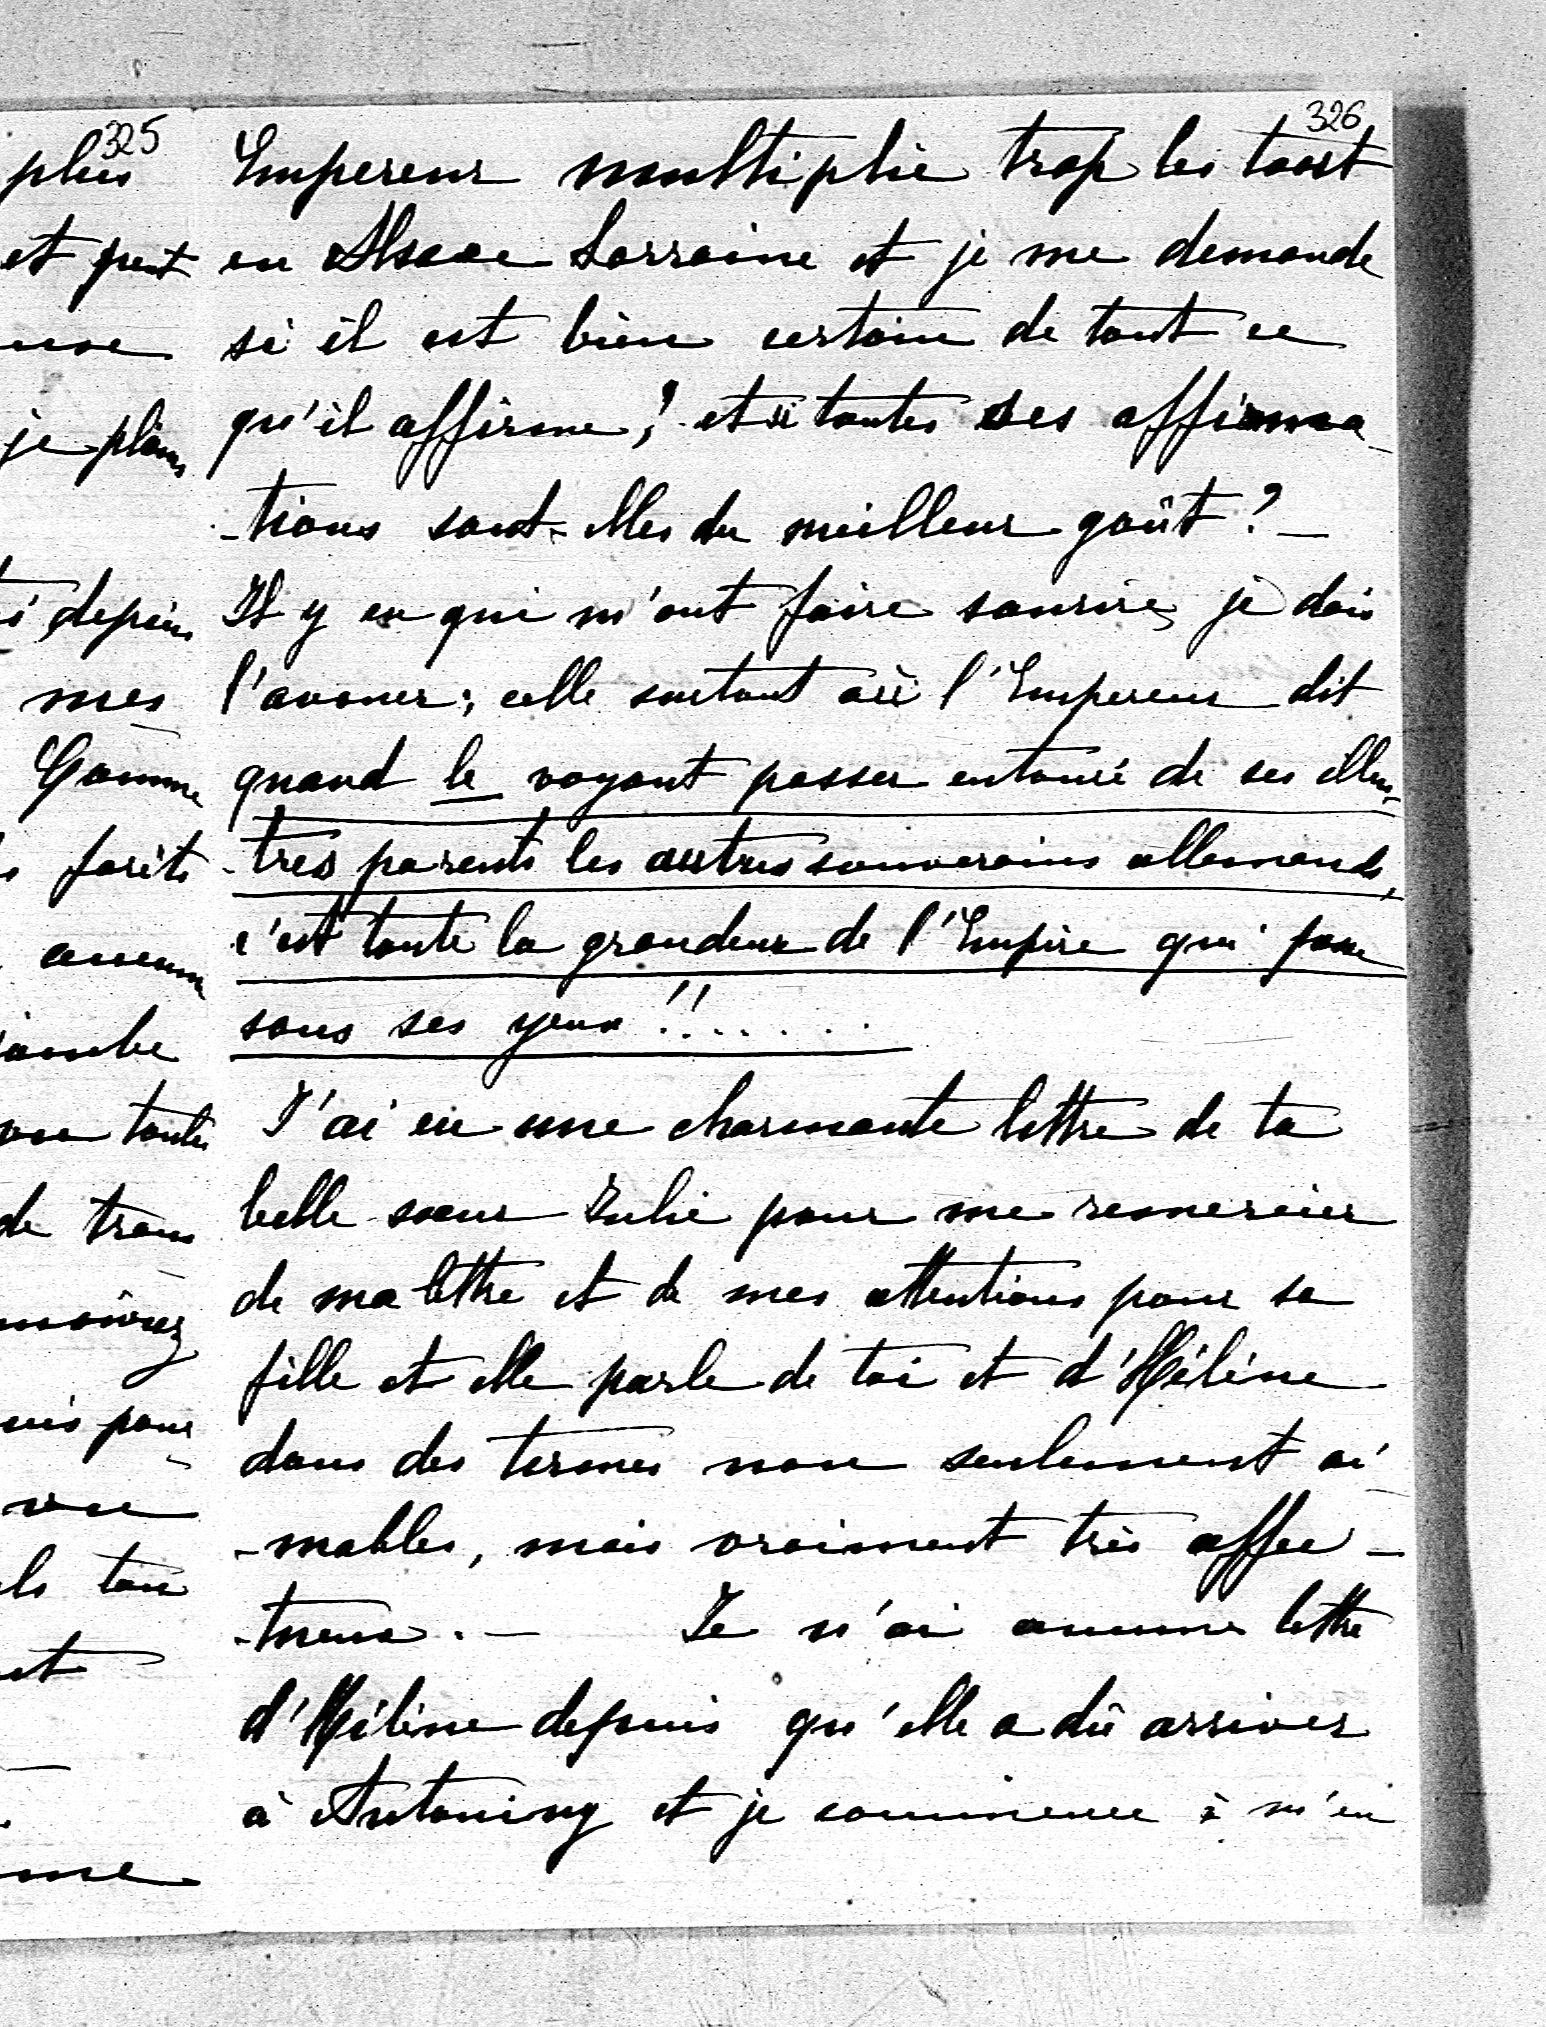 325
plus
et peut
je plains
depuis
mes
Comme
forêts
aucune
jambe
toute
de trans
pour
et
me
326
Empereur multiplie trop les toast
en Alsace Lorraine et je me demande
si il est bien certain de tout ce
qu'il affirme,? et si toutes ses affirma-
-tions sont-elles du meilleur goût? -
Il y en qui m'ont faire sourire, je dois
l'avouer; celle surtout où l'Empereur dit
quand le voyant passer entouré de ses illus-
-tres parents les autres souverains allemands,
c'est toute la grandeur de l'Empire qui passe
sous ses yeux!!......
J'ai eu une charmante lettre de ta
belle sœur Julie pour me remercier
de ma lettre et de mes attentions pour sa
fille et elle parle de toi et d'Hélène
dans des termes non seulement ai-
-mables, mais vraiment très affec-
-tueux. - Je n'ai aucune lettre
d'Hélène depuis qu'elle a dû arriver
à Antoniny et je commence à m'en